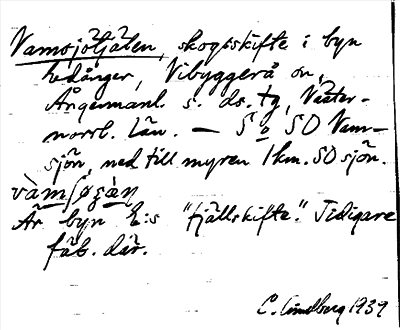 Vamsjötjälen, skogsskifte i byn
Edånger, Vibyggerå sn,
Ångermanl. s. ds. tg, Väster-
norrl. län. — S o SO Vam-
sjön ned till myren 1 km. SO sjön.
Är byn E:s "fjällskifte." Tidigare
fäb. där.
C. Lindberg 1939